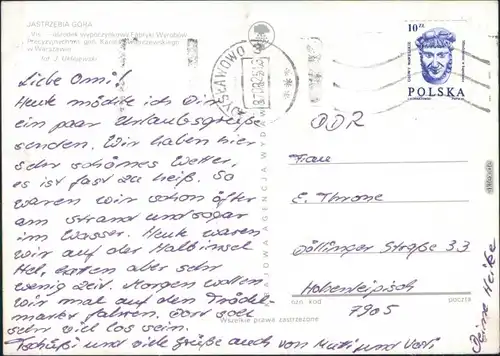 JASTRZEBIA GÓRA
ośrodek wypoczynkowy Fabryki Wyrobów
Precyzyjnych im. gen. Karola Świerczewskiego
w Warszawie
fot J. Uklejewski
WŁADYSŁAWOWO
10 ZŁ
POLSKA
KRAJOWA AGENCJA WYDAWNICZA
Liebe Omi!
Heute möchte ich Dir
ein paar Urlaubsgrüße
senden. Wir haben hier
sehr schönes Wetter,
es ist fast zu heiß. So
waren wir schon öfter
am Strand und sogar
im Wasser. Heute waren
wir auf der Halbinsel
Hel, hatten aber sehr
wenig Zeit. Morgen wollen
wir mal auf den Trödel-
markt fahren. Dort soll
sehr viel los sein.
Tschüßi und viele Grüße auch von Mutti und Vati
Deine Heike
DDR
Frau
E. Throne
Döllinger Straße 33
Hohenleipisch
7905
ozn. kod
poczta
Wszelkie prawa zastrzeżone